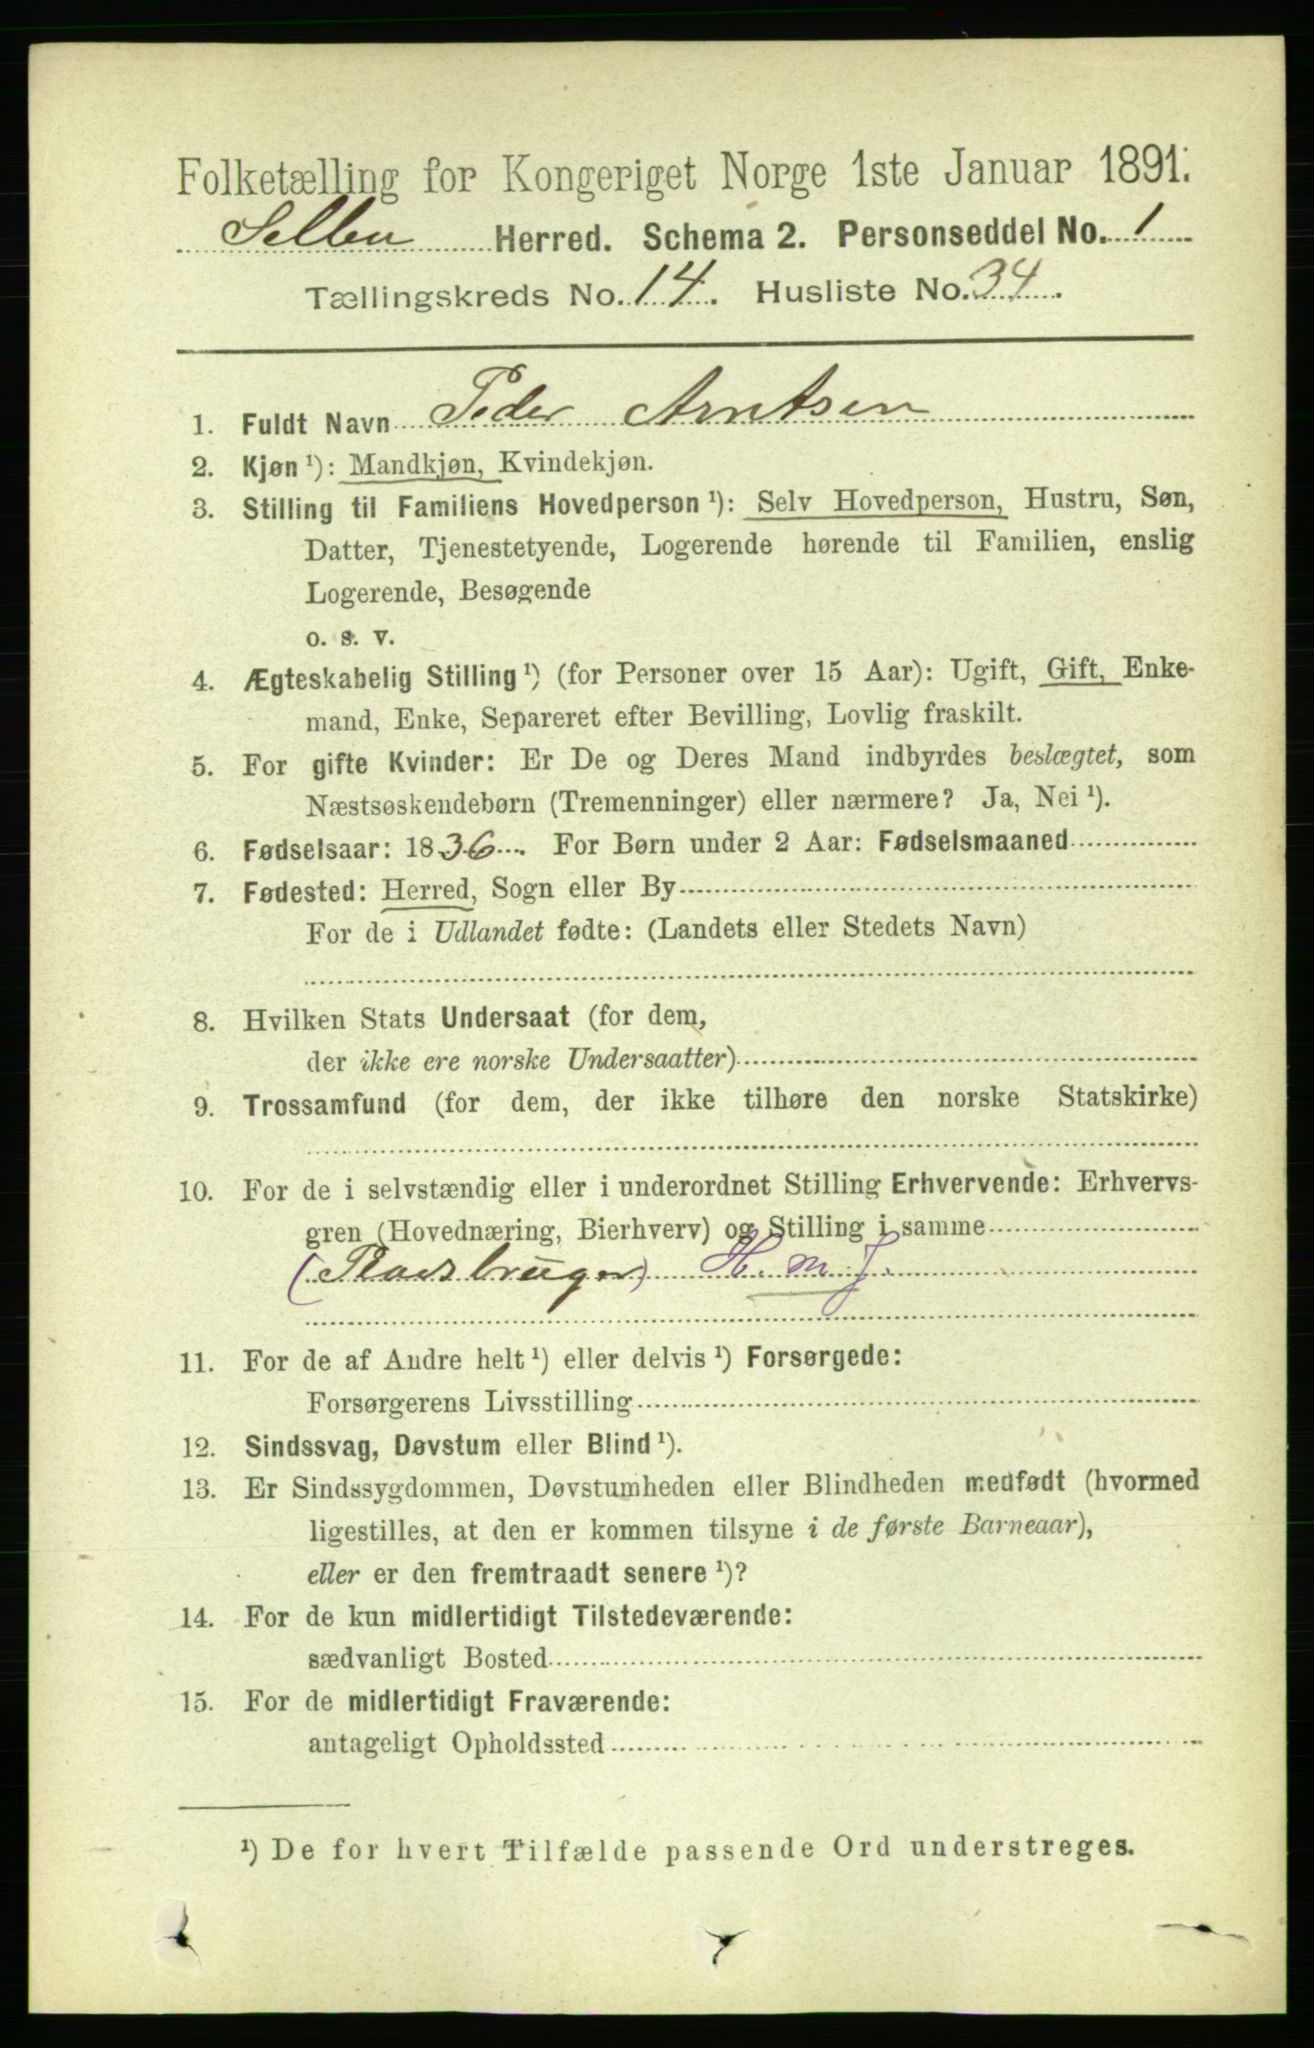 Folketælling for Kongeriget Norge 1ste Januar 1891.
Selbu Herred. Schema 2. Personseddel No. 1
Tællingskreds No. 14. Husliste No. 34.
1. Fuldt Navn Peder Arntsen
2. Kjøn ¹): Mandkjøn, Kvindekjøn.
3. Stilling til Familiens Hovedperson ¹): Selv Hovedperson, Hustru, Søn,
Datter, Tjenestetyende, Logerende hørende til Familien, enslig
Logerende, Besøgende
o. s. v.
4. Ægteskabelig Stilling ¹) (for Personer over 15 Aar): Ugift, Gift, Enke-
mand, Enke, Separeret efter Bevilling, Lovlig fraskilt.
5. For gifte Kvinder: Er De og Deres Mand indbyrdes beslægtet, som
Næstsøskendebørn (Tremenninger) eller nærmere? Ja, Nei ¹).
6. Fødselsaar: 1836. For Børn under 2 Aar: Fødselsmaaned
7. Fødested: Herred, Sogn eller By
For de i Udlandet fødte: (Landets eller Stedets Navn)
8. Hvilken Stats Undersaat (for dem,
der ikke ere norske Undersaatter)
9. Trossamfund (for dem, der ikke tilhøre den norske Statskirke)
10. For de i selvstændig eller i underordnet Stilling Erhvervende: Erhvervs-
gren (Hovednæring, Bierhverv) og Stilling i samme
(Pladsbruger) H. m. J.
11. For de af Andre helt ¹) eller delvis ¹) Forsørgede:
Forsørgerens Livsstilling
12. Sindssvag, Døvstum eller Blind ¹).
13. Er Sindssygdommen, Døvstumheden eller Blindheden medfødt (hvormed
ligestilles, at den er kommen tilsyne i de første Barneaar),
eller er den fremtraadt senere ¹)?
14. For de kun midlertidigt Tilstedeværende:
sædvanligt Bosted
15. For de midlertidigt Fraværende:
antageligt Opholdssted
¹) De for hvert Tilfælde passende Ord understreges.